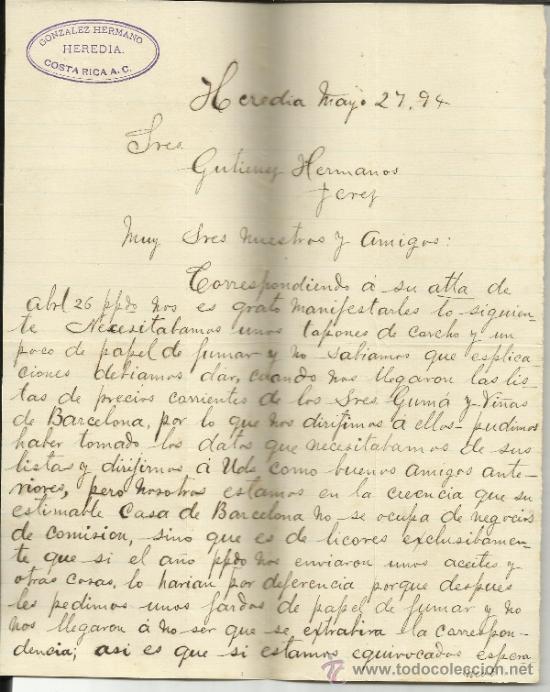 GONZALEZ HERMANO
HEREDIA.
COSTA RICA A.C.
Heredia Mayo 27, 94
Sres
Gutierrez Hermanos
Jerez
Muy Sres nuestros y Amigos:
Correspondiendo á su atta de
abrl 26 ppdo nos es grato manifestarles lo siguien
te Necesitabamos unos tapones de corcho y un
poco de papel de fumar y no sabiamos que esplica
ciones debiamos dar, cuando nos llegaron las lis
tas de precios carrientes de los Sres Gumá y Viñas
de Barcelona, por lo que nos dirijimos á ellos- pudimos
haber tomado los datos que necesitabamos de sus
listas y dirijirnos á Uds como buenos amigos ante-
riores, pero nosotros estamos en la creencia que su
estimable Casa de Barcelona no se ocupa de negocios
de comision, sino que es de licores exclusibamen-
te que si el año ppdo nos enviaron unos aceites y
otras cosas, lo harian por deferencia porque despues
les pedimos unos fardos de papel de fumar y no
nos llegaron á no ser que se extrabira la correspon-
dencia; asi es que si estamos equivocados espera
www.todocoleccion.net
todocoleccion